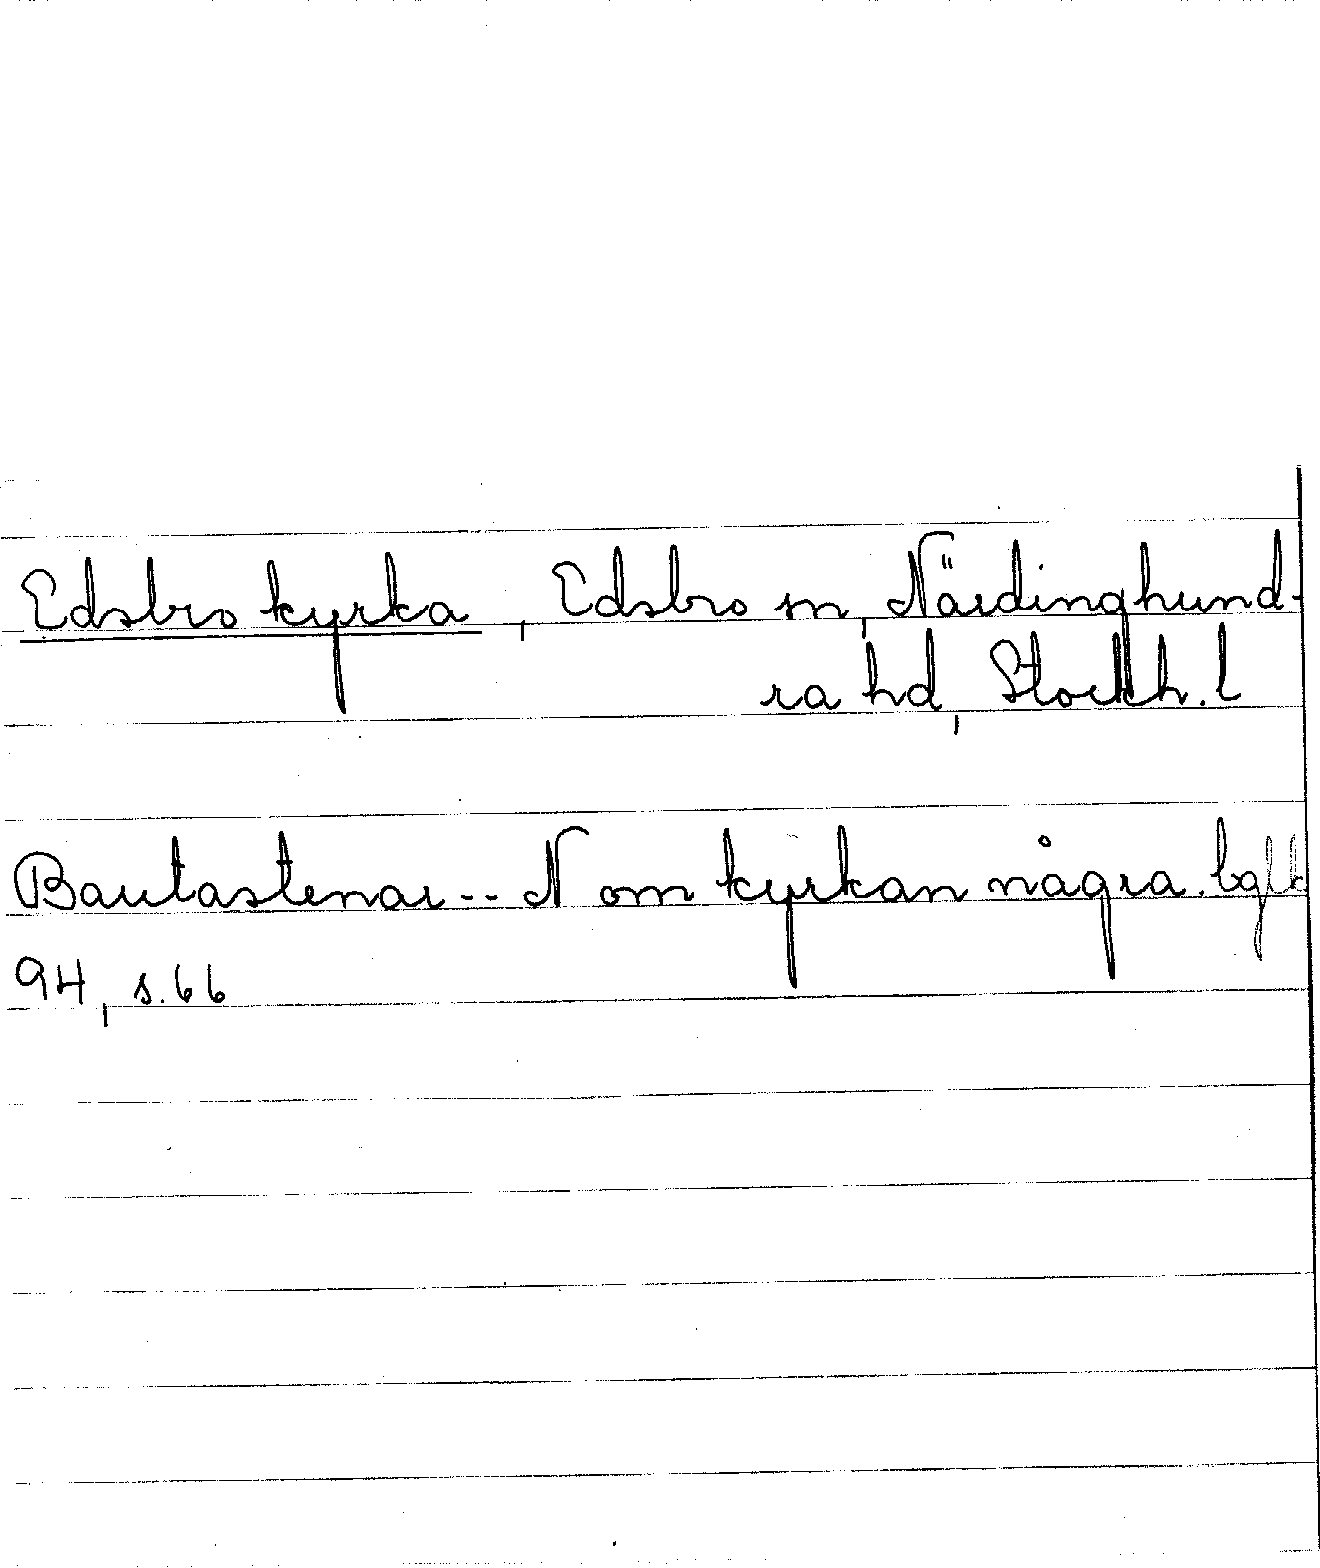 Edsbro kyrka, Edsbro sn, Närdinghund-
ra hd, Stockh. l
Bautastenar -- N om kyrkan några.
94, s. 66